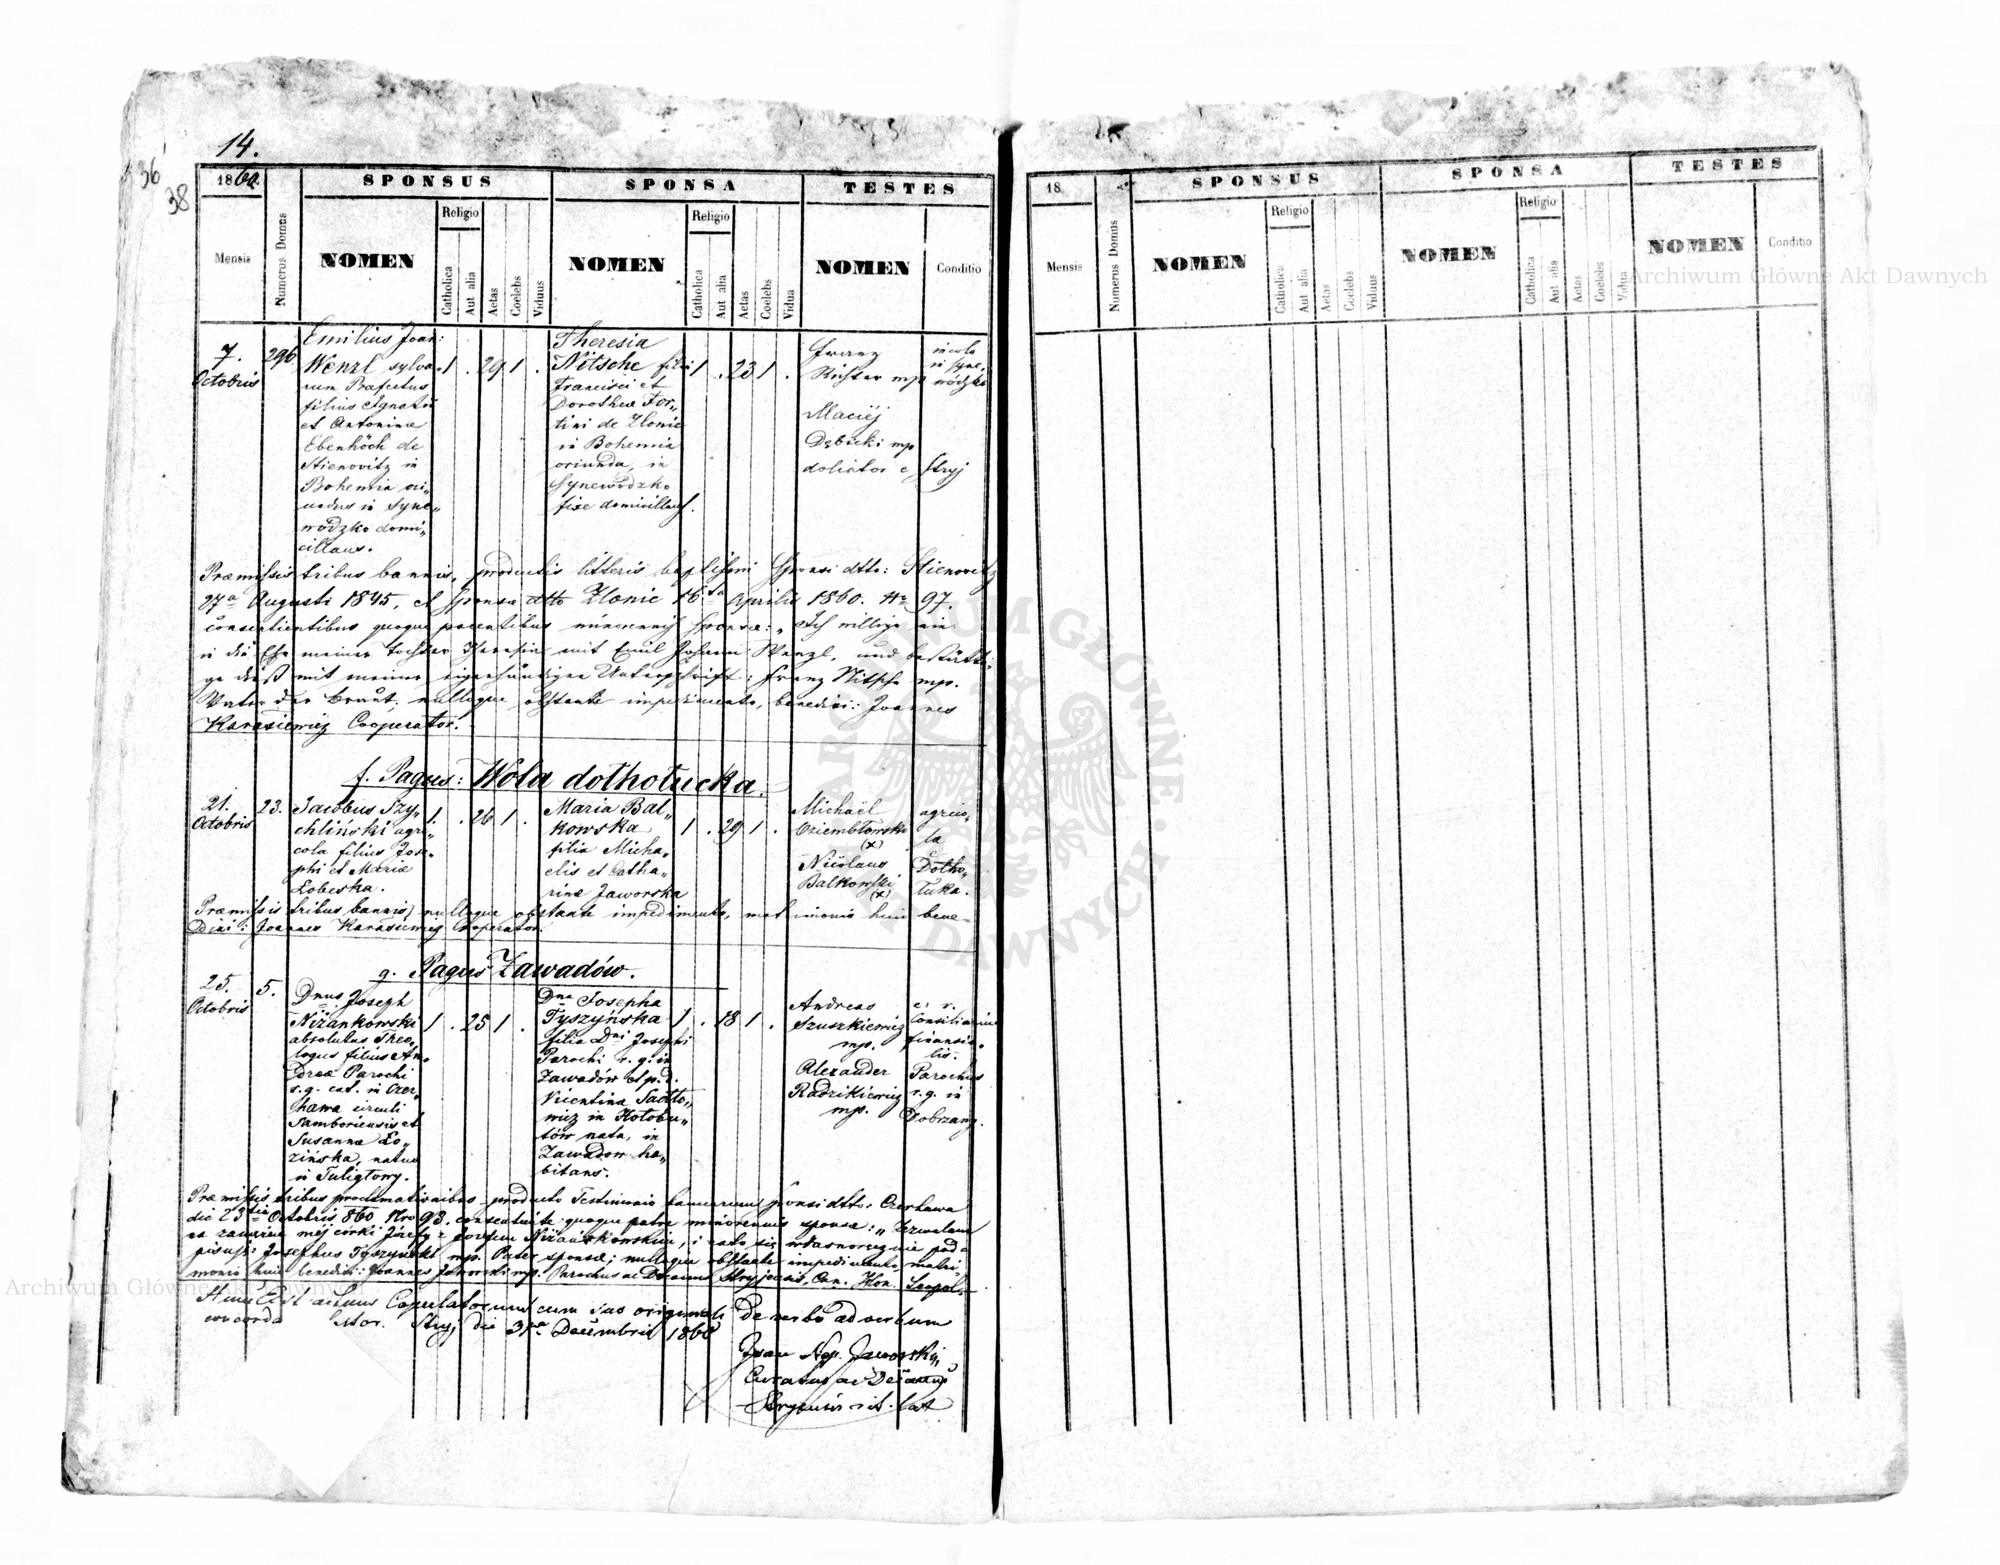 14.
36
38
1860.
SPONSUS
SPONSA
TESTES
Mensis
Numerus Domus
NOMEN
Religio
Catholica
Aut alia
Aetas
Coelebs
Viduus
NOMEN
Religio
Catholica
Aut alia
Aetas
Coelebs
Vidua
NOMEN
Conditio
7.
Octobris
296
Emilius Joan:
Wenzl sylva„
rum Præfectus
filius Ignatii
et Antoninæ
Ebenhöch de
Stienovitz in
Bohemia ori„
undus in Syne„
wódzko domi„
cillans.
1 . 29 1 .
Theresia
Nitsche filia
Francisci et
Dorotheæ For„
tini de Zlonic
in Bohemia
oriunda, in
Synewódzko
fixe domicillans.
1 . 23 1 .
Franz
Richter mp
incola
in Syne„
wódzko
Maciéj
Dębicki mp
dolictor e Stryj
Præmissis tribus bannis, productis litteris baptismi Sponsi dtto: Stienovitz
27a Augusti 1845, et Sponsæ dtto Zlonic 16ta Aprilis 1860. Nr 97.
consentientibus quoque parentibus minorennis Sponsæ: „Ich willige ein
in die Ehe meiner Tochter Theresia mit Emil Johann Wenzl, und bestätti„
ge dieß mit meiner eigenhändigen Unterschrift: Franz Nitsche mp.
Vater der Braut, nulloque obstante impedimento, benedixi: Joannes
Karasiewicz Cooperator.
f. Pagus: Wola dołhołucka.
21.
Octobris
23.
Jacobus Szy„
chliński agri„
cola filius Jose„
phi et Mariæ
Łobeska.
1 . 26 1 .
Maria Bal„
kowska
filia Micha„
elis et Catha„
rinæ Jaworska
1 . 29 1 .
Michaël
Dziembłowski
(x)
Balkowski
(x)
agrico„
la
e
Dołho„
łuka.
Præmissis tribus bannis, nulloque obstante impedimento, matrimonio huic bene„
dixi: Joannes Karasiewicz Cooperator.
g. Pagus Zawadów.
25.
Octobris
5.
Dnus Joseph
Niżankowski
absolutus Theo„
logus filius An„
dreæ Parochi
r.g. cat. in Czer„
hawa circuli
Samboriensis et
Susannæ Ło„
zińska, natus
in Tuligłowy.
1 . 25 1 .
Dna Josepha
Tyszyńska
filia Dni Josephi
Parochi r. g. in
Zawadów et p. d.
Vicentina Sadło„
wicz in Hołobu„
tów nata, in
Zawadow ha„
bitans.
1 . 18 1 .
Andreas
Szuszkiewicz
mp.
c. r.
Consiliarius
finansia„
lis.
Alexander
Radzikiewicz
mp.
Parochus
r. g. in
Dobrzany.
Præmissis tribus proclamationibus producto Testimonio bannorum sponsi dtto: Czerhawa
die 23tia Octobris 860 Nro 93. consentiente quoque patre minorennis sponsæ: „Zezwalam
na zawarcie méj córki Józefy z Józefem Niżankowskim, i na to się własnoręcznie pod„
pisuję: Josephus Tyszyński mp. Pater sponsæ; nulloque obstante impedimento, matri„
monio huic benedixi: Joannes Jaworski mp. Parochus ac Decanus Stryjensis, Can. Hon. Leopol.
Hunc Actum Copulatorum cum suo originali de verbo ad verbum
concorda
Stryj die 31a Decembris 1860
Joan Nep. Jaworski,
Curatus ac Decanus
Stryensis rit. lat
18
SPONSUS
SPONSA
TESTES
Mensis
Numerus Domus
NOMEN
Religio
Catholica
Aut alia
Aetas
Coelebs
Viduus
NOMEN
Religio
Catholica
Aut alia
Aetas
Coelebs
Vidua
NOMEN
Conditio
Archiwum Główne Akt Dawnych
Archiwum Główne Akt Dawnych
ARCHIWUM GŁÓWNE AKT DAWNYCH